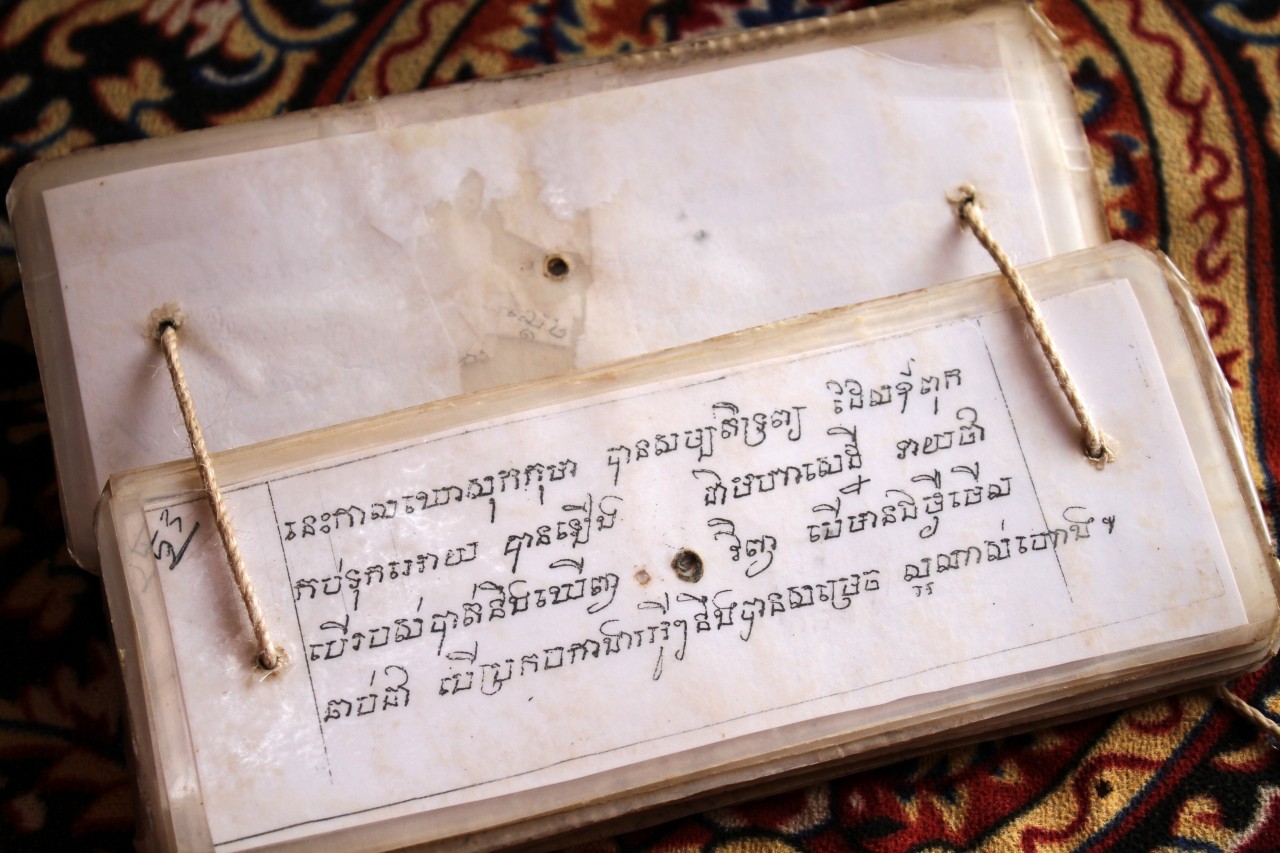 នេះកាលឃោសុកកុមា បានសម្បតិទ្រព្យ ដែលឪពុក
កប់ទុកអោយ បានឡើង ជាមហាសេដ្ឋី ទាយថា
បើរបស់បាត់នឹងឃើញ វិញ បើមានជំងឺមើល
ឆាប់ជា បើប្រកបការងារអ្វីៗនឹងបានសម្រេច ល្អណាស់ហោង